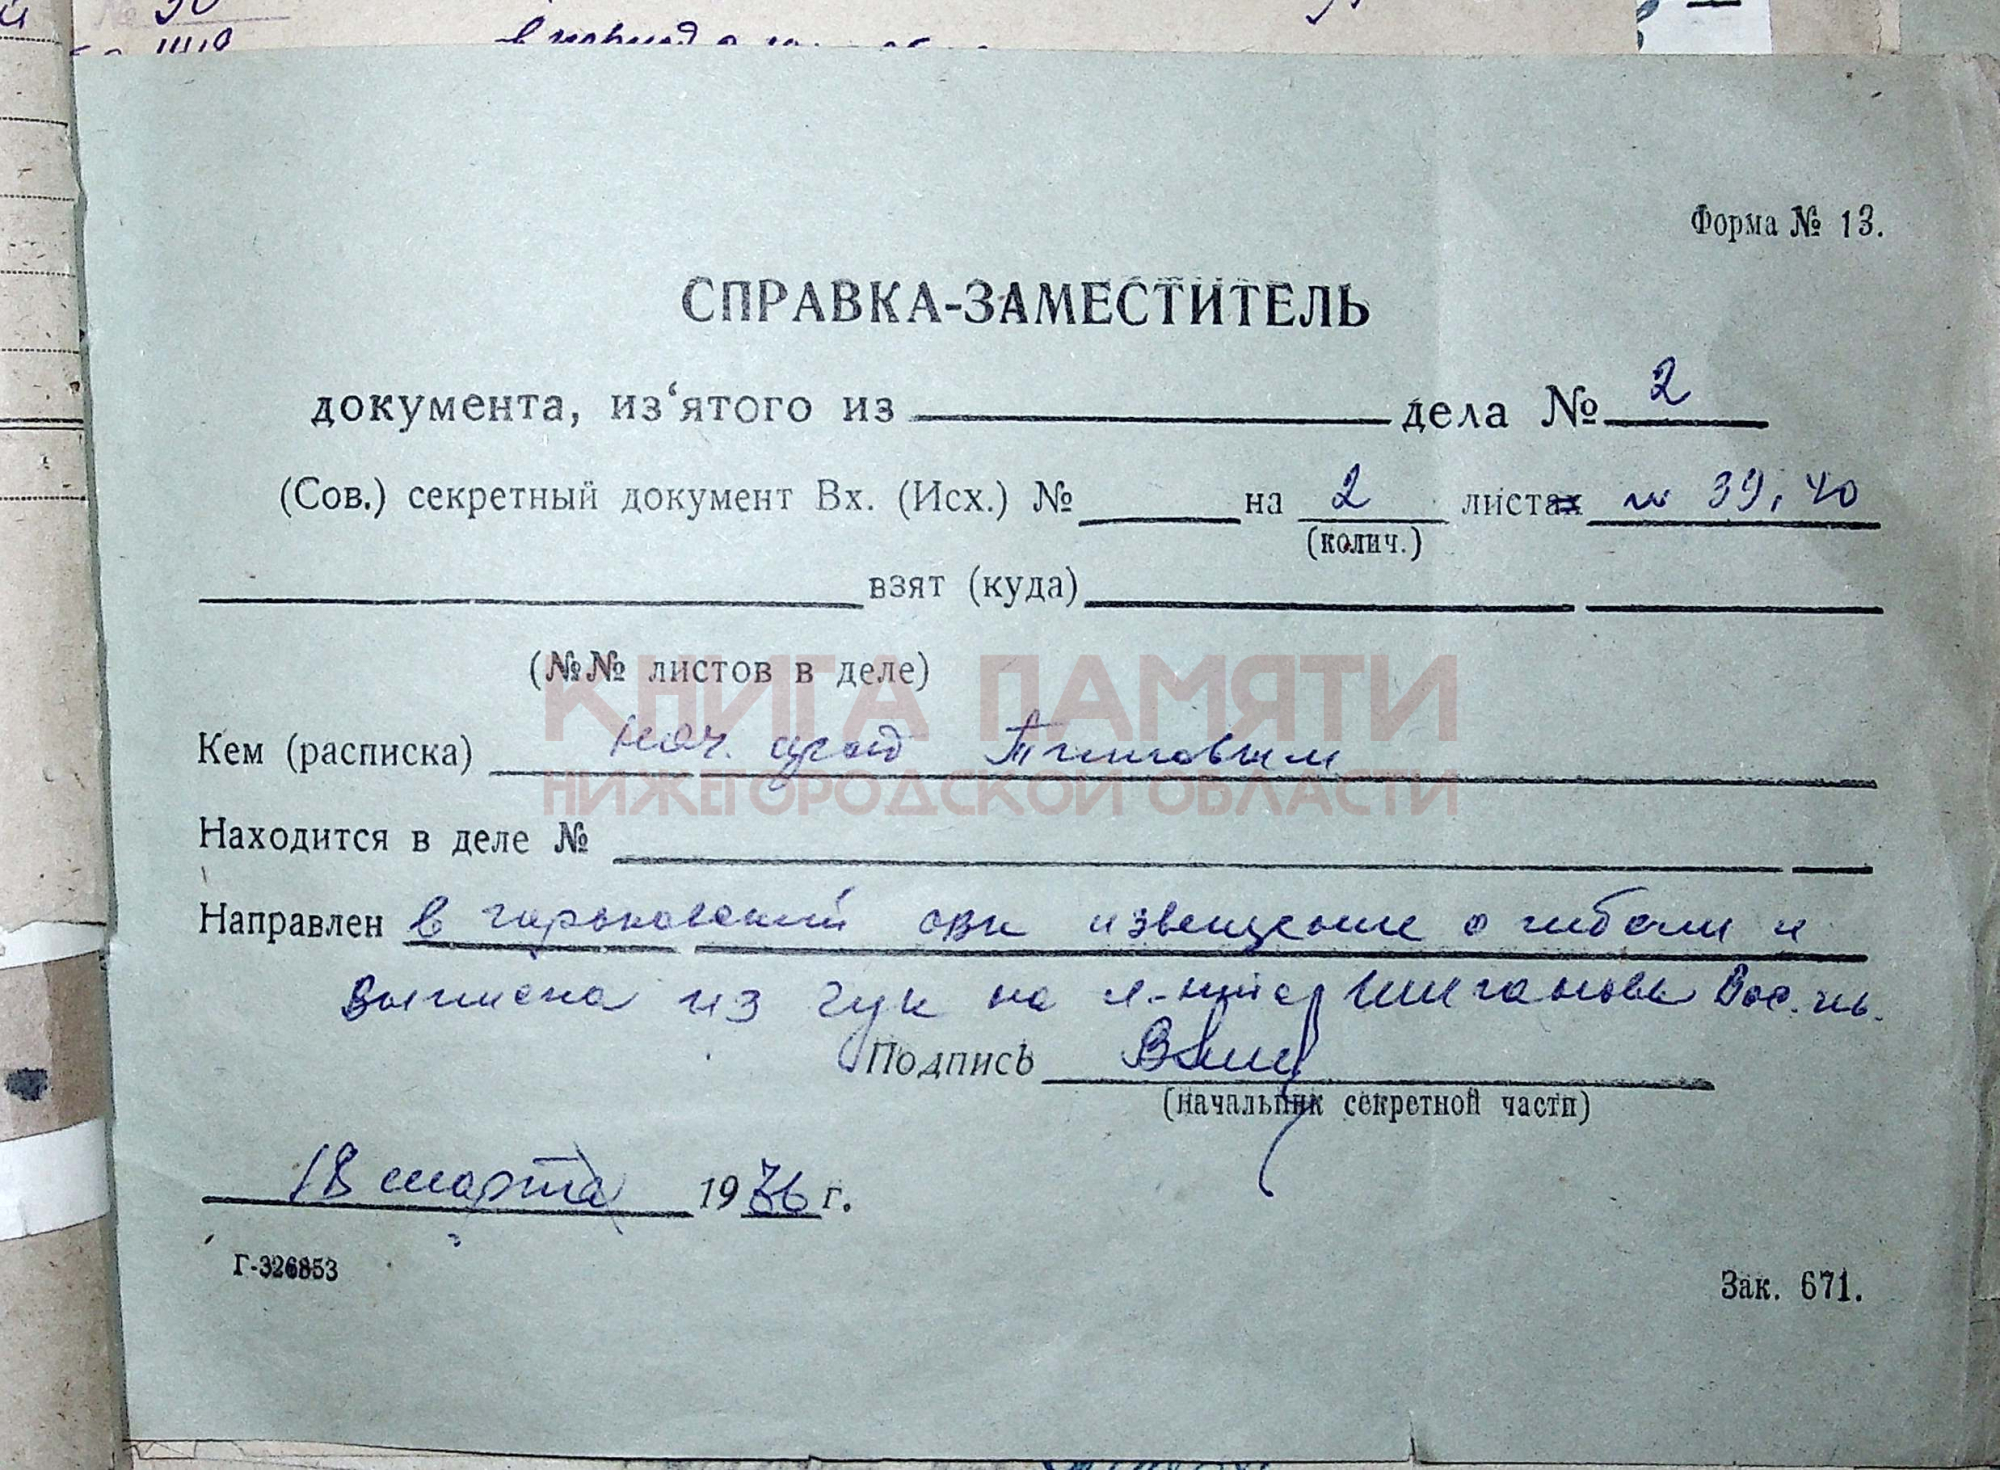 Форма № 13.
СПРАВКА-ЗАМЕСТИТЕЛЬ
документа, из‘ятого из дела № 2
(Сов.) секретный документ Вх. (Исх.) № на 2 листах 39, 40
(колич.)
взят (куда)
(№№ листов в деле)
КНИГА ПАМЯТИ
Кем (расписка) нач.
НИЖЕГОРОДСКОЙ ОБЛАСТИ
Находится в деле №
Направлен в горьковский овк извещение о гибели и
выписка из на л-нта Вас. Ив.
Подпись
(начальник секретной части)
18 марта 1976 г.
Г-326853
Зак. 671.